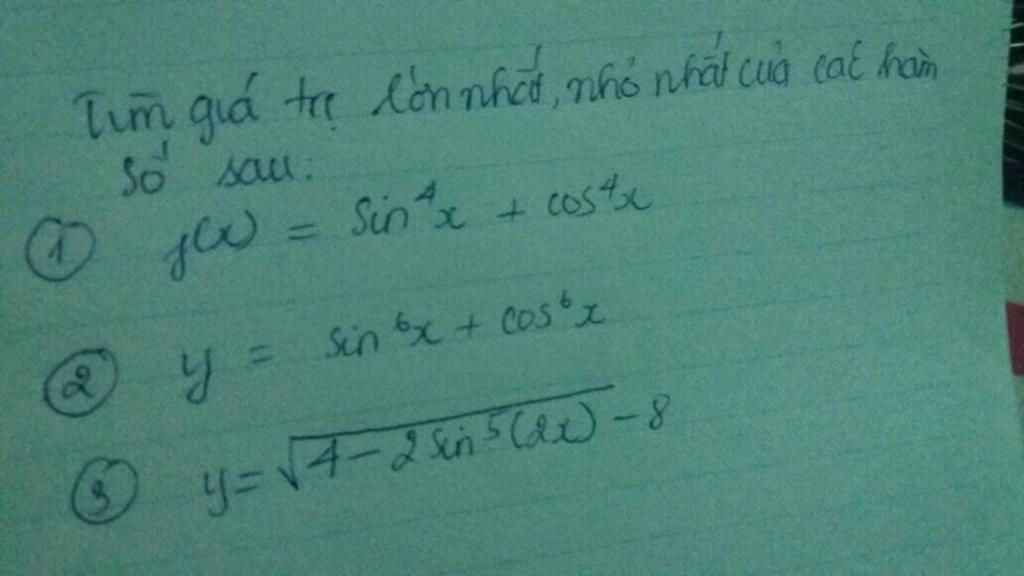 Tìm giá trị lớn nhất, nhỏ nhất của các hàm
số sau:
① f(x) = sin⁴x + cos⁴x
② y = sin⁶x + cos⁶x
③ y = √(4 - 2sin⁵(2x)) - 8